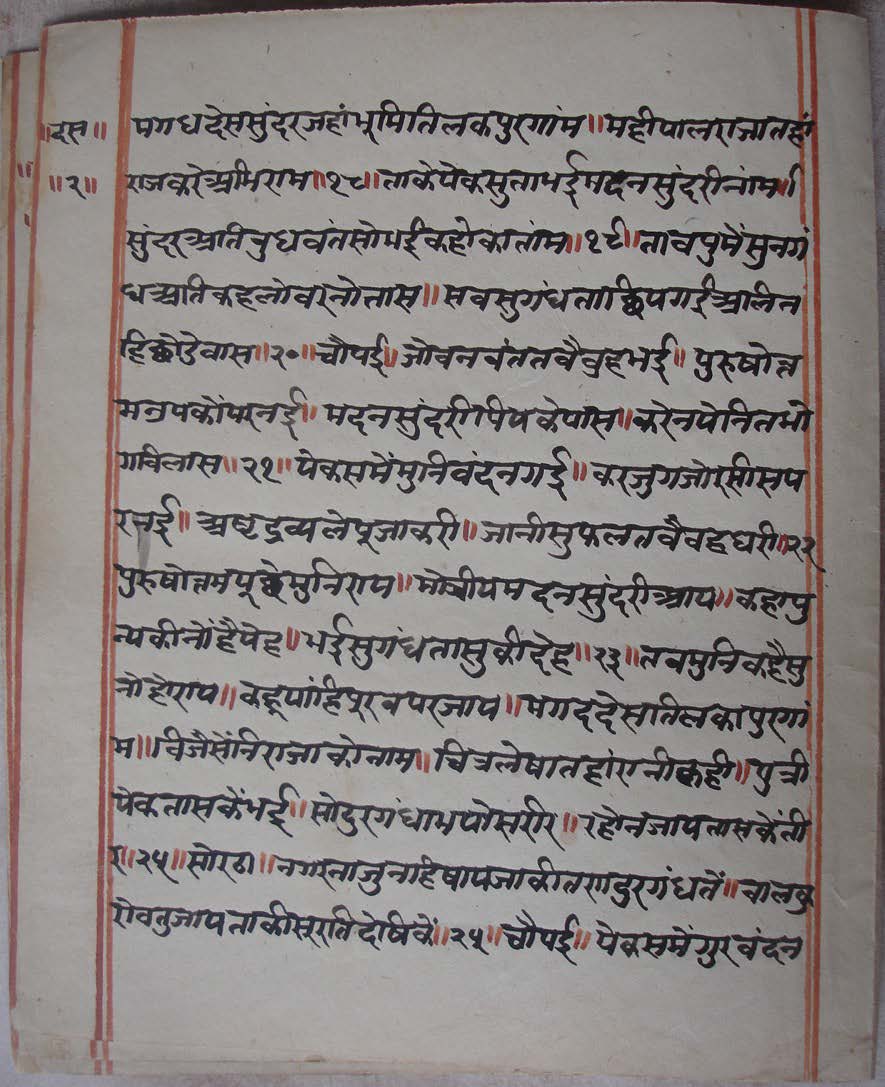 ॥दस॥ मगधदेससुंदरजहांभूमितिलकपुरगांम॥महीपालराजातहां
॥२॥ राजकरेअभिराम॥१८॥ताकेपेकसुताभईमदनसुंदरीनांम॥
सुंदरअतिबुधवंतसोभईकहोकातांम॥१९॥तावपुमेंसुनगं
धअतिकहलोवरनोतास॥सवसुगंधताकिपगईअलित
हिछोडेवास॥२०॥चौपई॥जोवनवंततवैवुहभई॥पुरुषोत्त
मनृपकोंपरनई॥मदनसुंदरीपीपकेपास॥करेनपेनितभो
गविलास॥२१॥पेकसमेंमुनिवंदनगई॥करजुगजोरसीसप
रनई॥अष्टद्रव्यलेपूजाकरी॥जानीसुफलतवैवहघरी॥२२
पुरुषोत्तमपूछेमुनिराप॥मोत्रीपमदनसुंदरीआप॥कहापु
न्यकीनोंहैपेह॥भईसुगंधतासुकीदेह॥२३॥तबमुनिकहैसु
नोहेराप॥कहूपांहिपूरबपरजाप॥मगददेसतिलकापुरगां
म॥विजैसेंनिराजाकोनाम॥चित्रलेषातहांरानीकही॥पुत्री
पेकतासकेंभई॥सोदुरगंधामपोसरीर॥रहोनजापतासकेंती
र॥२५॥सोरठा॥नगरनाजुनहिंषापजाकीतरादुरगंधतें॥वालकु
रोवतुजापताकीसूरतिदेषिकें॥२५॥चौपई॥पेकसमेंगुरवंदन